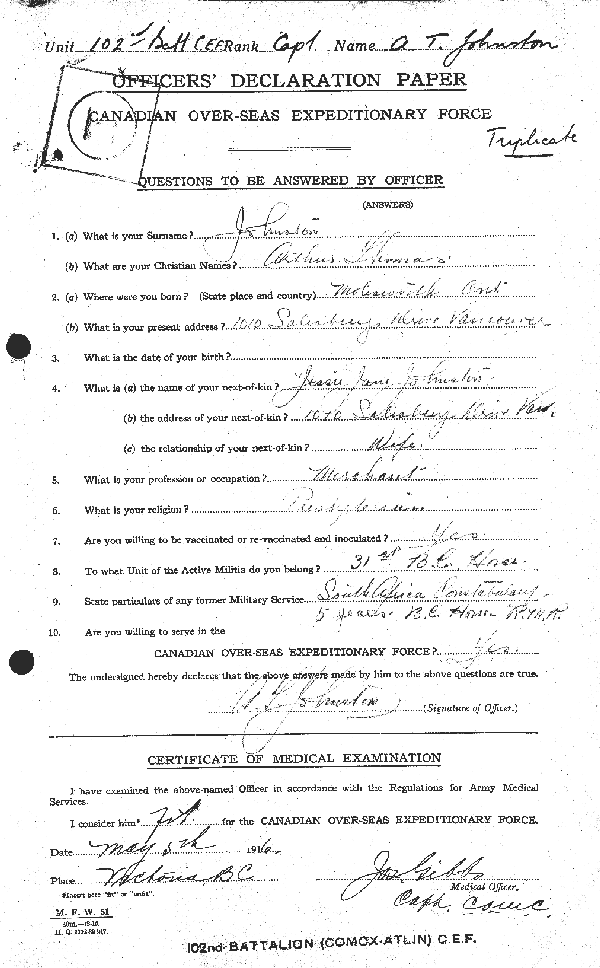 Unit 102nd Batt CEF Rank Capt. Name A T. Johnston
OFFICERS' DECLARATION PAPER
CANADIAN OVER-SEAS EXPEDITIONARY FORCE
Triplicate
QUESTIONS TO BE ANSWERED BY OFFICER
(ANSWERS)
1. (a) What is your Surname? Johnston
(b) What are your Christian Names? Arthur Thomas
2. (a) Where were you born? (State place and country) Molesworth Ont
(b) What is your present address? 1010 Salisbury Drive Vancouver
3. What is the date of your birth?
4. What is (a) the name of your next-of-kin? Jessie Jane Johnston
(b) the address of your next-of-kin? 1010 Salisbury Drive Van.
(c) the relationship of your next-of-kin? Wife.
5. What is your profession or occupation? Merchant
6. What is your religion? Presbyterian
7. Are you willing to be vaccinated or re-vaccinated and inoculated? Yes
8. To what Unit of the Active Militia do you belong? 31st B.C. Horse
9. State particulars of any former Military Service South Africa Constabulary
5 years. B.C. Horse R.M.R.
10. Are you willing to serve in the
CANADIAN OVER-SEAS EXPEDITIONARY FORCE? Yes.
The undersigned hereby declares that the above answers made by him to the above questions are true.
A T Johnston (Signature of Officer.)
CERTIFICATE OF MEDICAL EXAMINATION
I have examined the above-named Officer in accordance with the Regulations for Army Medical
Services.
I consider him* fit for the CANADIAN OVER-SEAS EXPEDITIONARY FORCE.
Date May 5th 1916.
Place Victoria B.C.
Jas Gibbs
Medical Officer.
*Insert here "fit" or "unfit".
Capt. C.A.M.C.
M. F. W. 51
102nd-BATTALION (COMOX-ATLIN) C.E.F.